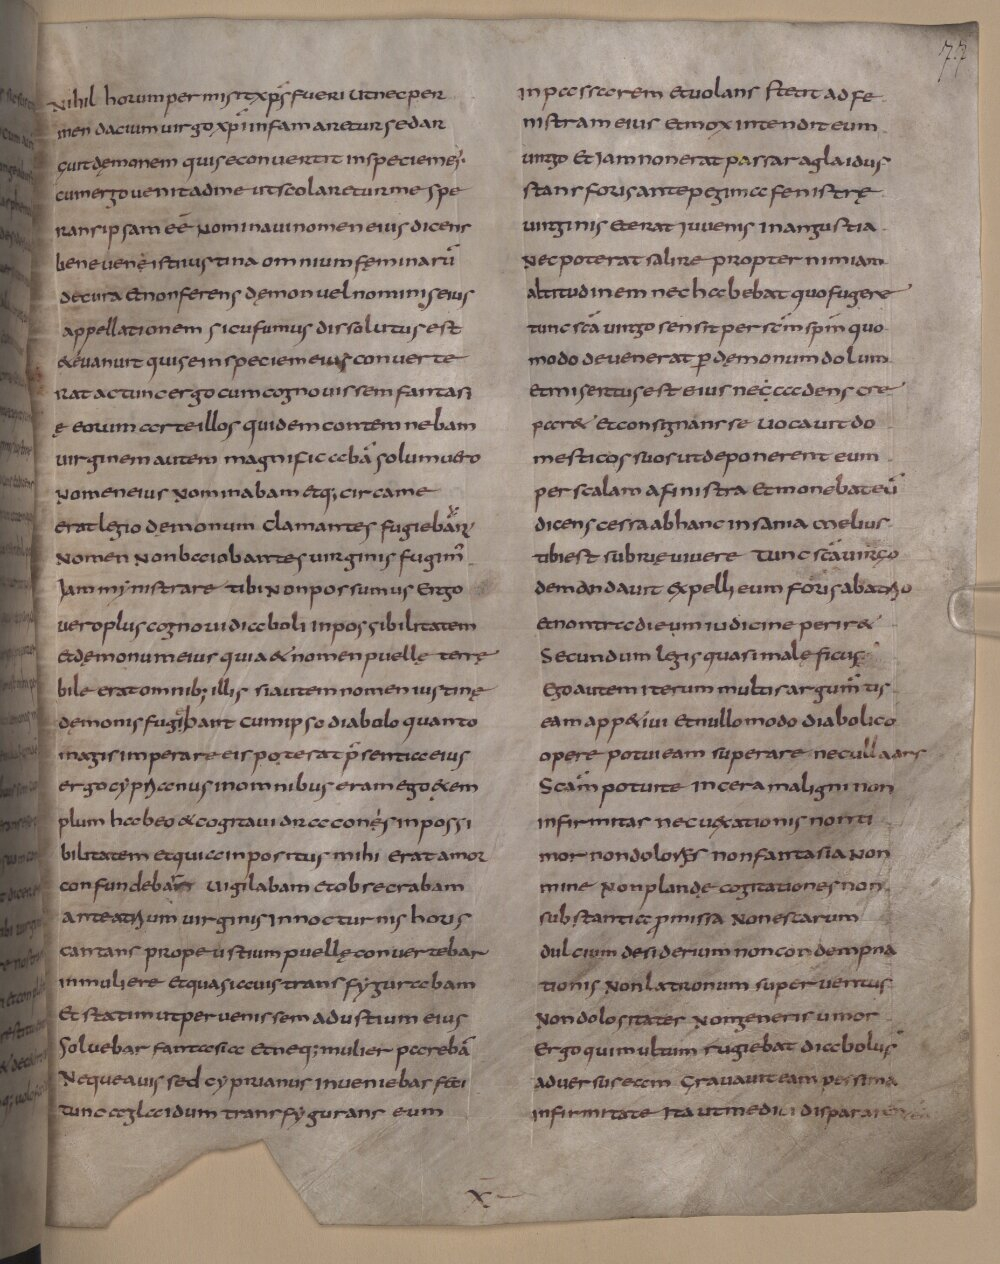 77
Nihil horum permisit xp̄s fueri ut nec per
men dacium uirgo xp̄i infamaretur sed ar
guit dęmonem qui se conuertit in speciem ei;
cum ergo uenit ad me ut scolaretur me spe
rans ipsam eē Nominaui nomen eius dicens
bene uenęisti iustina omnium feminarū
decura Et non ferens dęmon uel nominis eius
appellationem sicu fumus dissolutus est
& euanuit qui se in speciem eius conuerte
rat ac tunc ergo cum cognouissem fantasi
ę eorum arte illos quidem contemnebam
uirginem autem magnificabā solum uero
Nomen eius Nominabam Etq; circa me
erat legio demonum clamantes fugiebār
Nomen Non baiobantes uirginis fugim̄
Jam mynistrare tibi Non possumus Ergo
uero plus cognoui diaboli inpossibilitatem
Et dęmonum eius quia & nomen puellę terrę
bile erat omnib; illis si autem nomen iustinę
dęmonis fugibant cum ipso diabolo quanto
magis imperare eis poterat p̄sentia eius
ergo cyprianus in omnibus eram ego & em
plum habeo & cogitaui draconęs in possi
bilitatem Et quia inpositus mihi erat amor
confundebar uigilabam Et obsecrabam
ante atrium uirginis In nocturnis horis
cantans prope ustium puellę conuertebar
in muliere Et quasi auis transfygurabam
Et statim ut peruenissem ad ustium eius
Soluebar fantasia Et neq; mulier parebā
Neque auis sed cyprianus inueniebar feti
tunc aglaidum transfygurans eum
In passarem Et uolans stetit ad fe
nistram eius Et mox intendit eum
uirgo Et Jam non erat passar aglaidus
stans foris ante pegima fenistrę
uirginis Et erat iuuenis In angustia
Nec poterat salire propter nimiam
altitudinem nec habebat quo fugere
tunc scā uirgo sensit per scm̄ spm̄ quo
modo deuenerat p dęmonum dolum
Et misertus est eius nec cadens cre
par& Et consignans se uocauit do
mesticos suos ut deponerent eum
per scalam a finistra Et monebat eū
dicens cessa ab hanc insania melius
tibi est subrię uiuere Tunc scā uirgo
demandauit expelli eum foris ab atrio
Et non tradi eum iudici ne perir&
Secundum legis quasi maleficus
Ego autem iterum multis argum̄tis
eam app&iui Et nullo modo diabolico
opere potui eam superare nec ulla ars
Scām potuit e In cera maligni non
infirmitas nec uexationis non ti
mor non dolores non fantasia Non
mine Non plande cogitationes non
substantia p̄missa Non escarum
dulcium desiderium non condempna
tionis Non latronum superuentus
Non dolositates Non generis umor
Ergo qui multum rugiebat diabolus
aduersus eam Grauauit eam pessima
infirmitate Ita ut medici
X